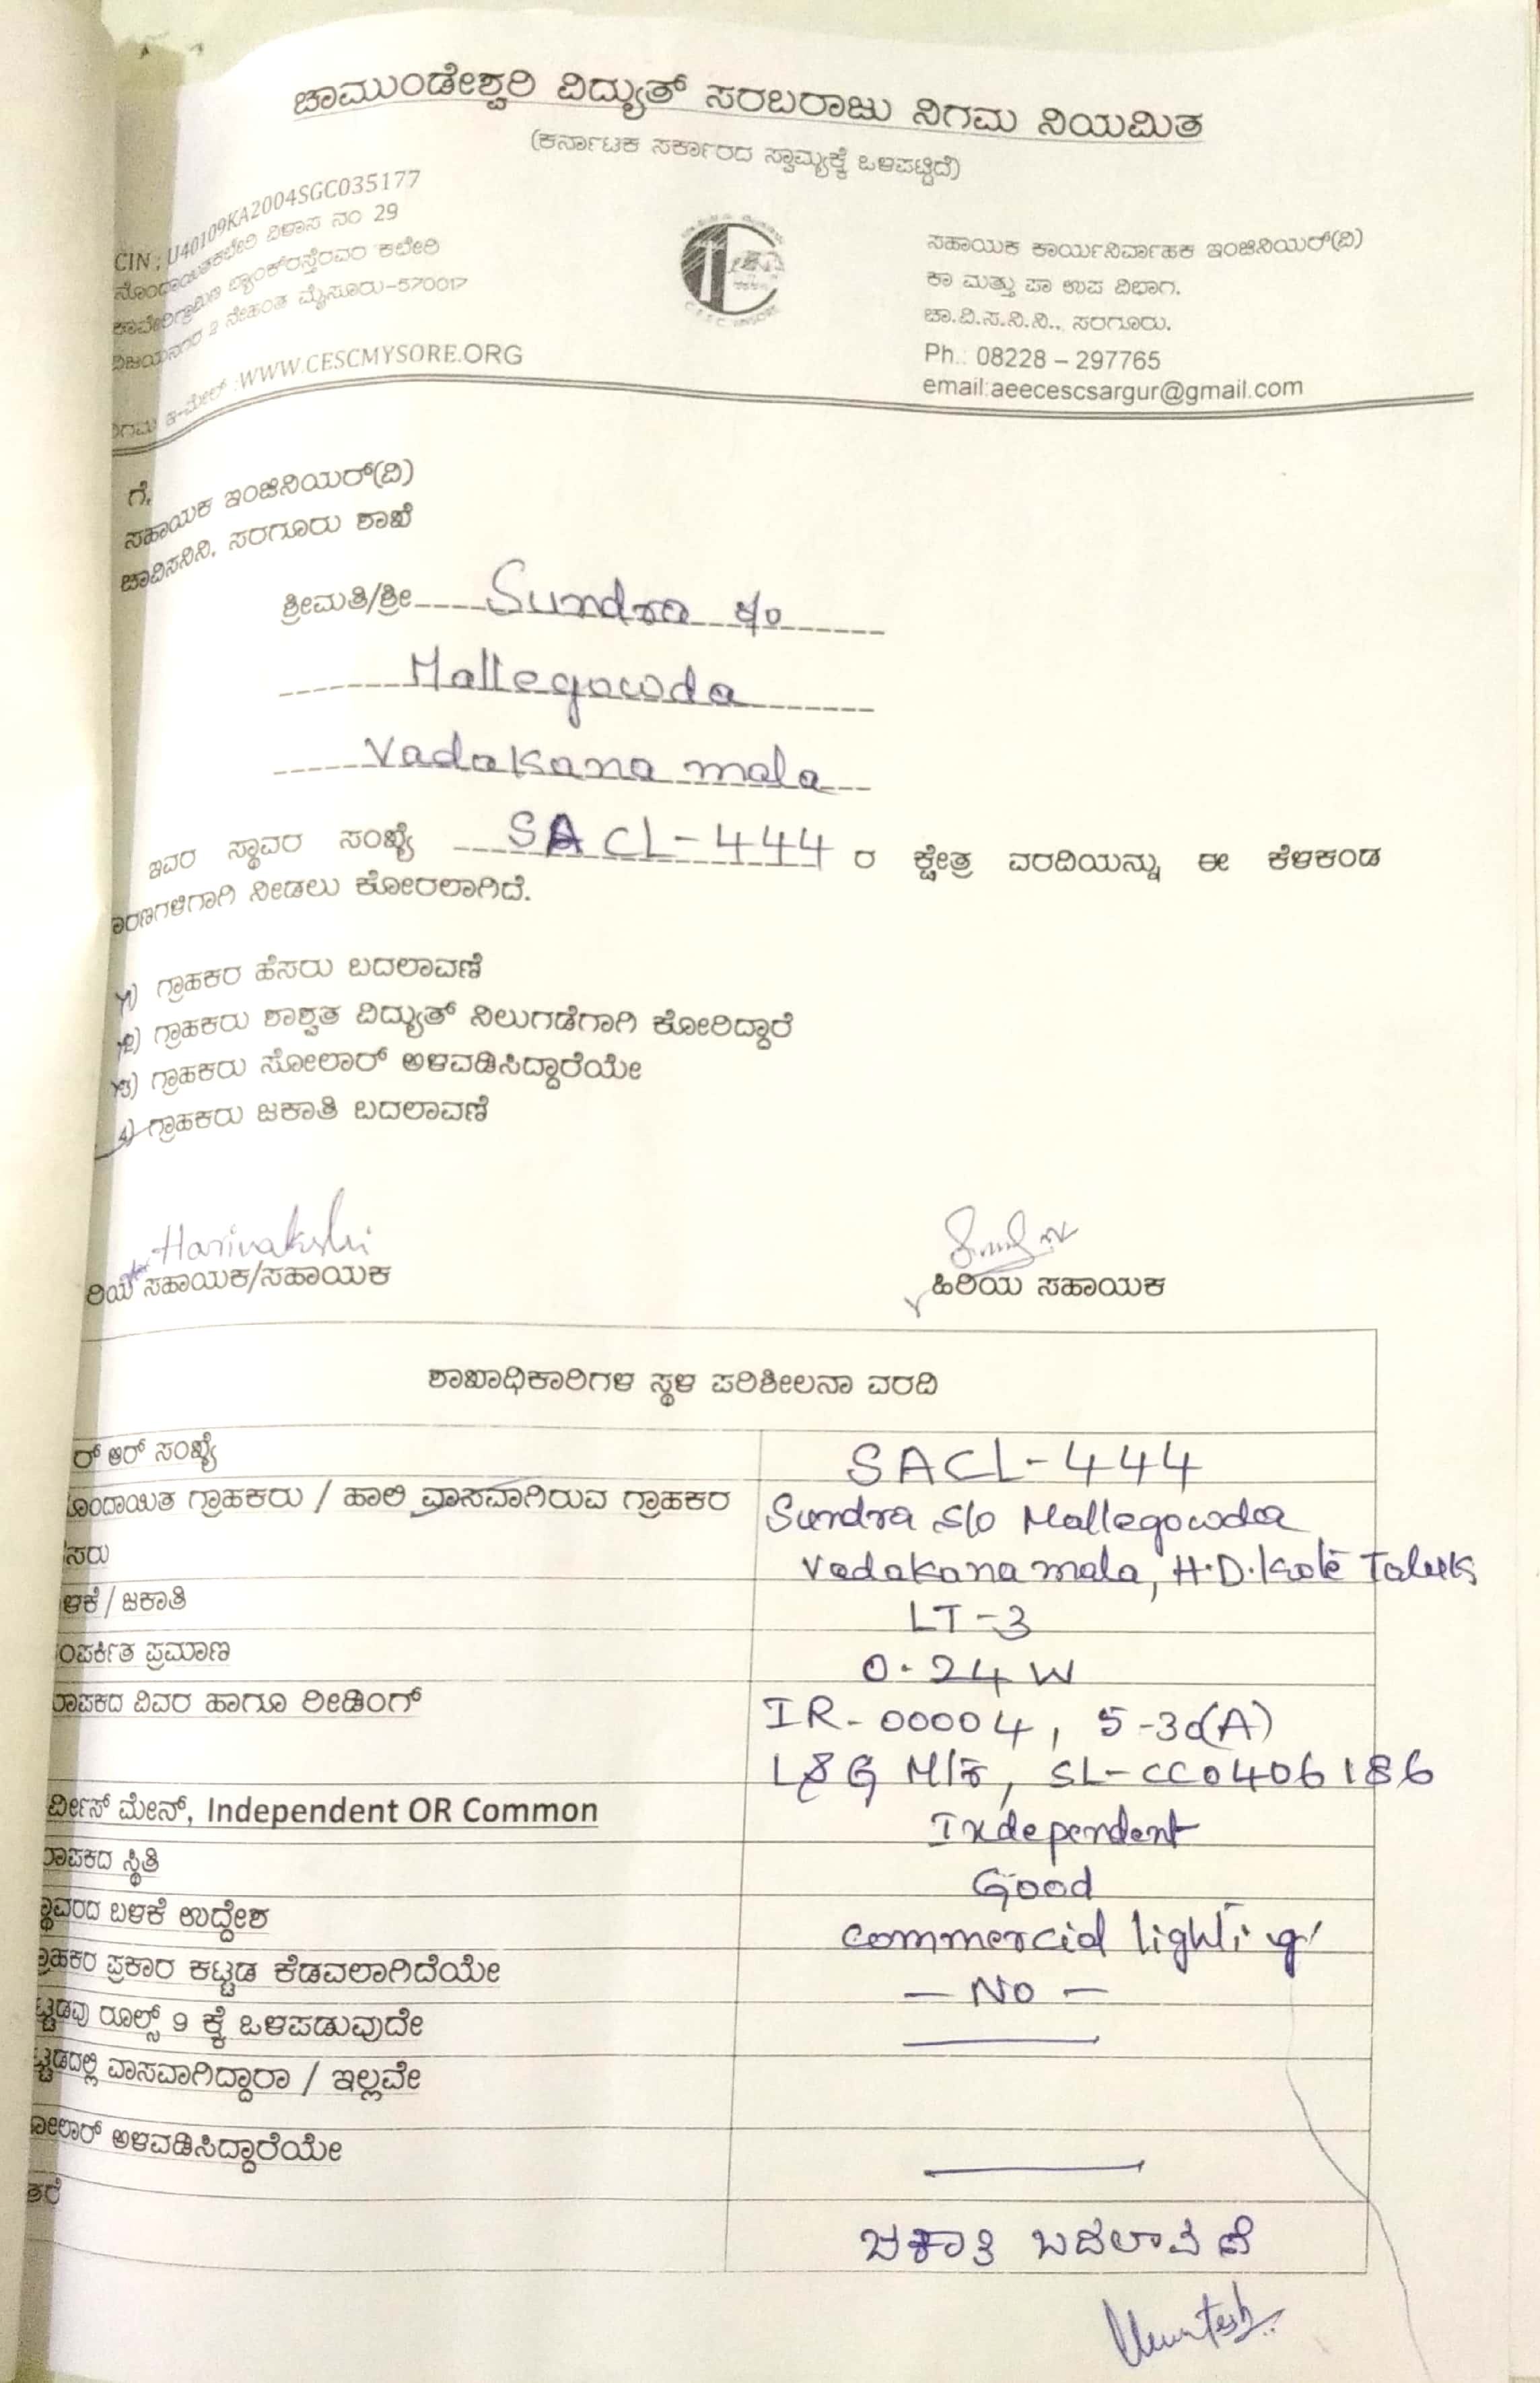 ಚಾಮುಂಡೇಶ್ವರಿ ವಿದ್ಯುತ್ ಸರಬರಾಜು ನಿಗಮ ನಿಯಮಿತ
(ಕರ್ನಾಟಕ ಸರ್ಕಾರದ ಸ್ವಾಮ್ಯಕ್ಕೆ ಒಳಪಟ್ಟಿದೆ)
CIN : U40109KA2004SGC035177
ನೊಂದಾಯಿತಕಛೇರಿ ವಿಳಾಸ ನಂ 29
ಕಾವೇರಿಗ್ರಾಮೀಣ ಬ್ಯಾಂಕ್‌ರಸ್ತೆರವರ ಕಛೇರಿ
ವಿಜಯನಗರ 2 ನೇಹಂತ ಮೈಸೂರು-570017
ನಿಗಮ ಇ-ಮೇಲ್ :WWW.CESCMYSORE.ORG
ಸಹಾಯಕ ಕಾರ್ಯನಿರ್ವಾಹಕ ಇಂಜಿನಿಯರ್(ವಿ)
ಕಾ ಮತ್ತು ಪಾ ಉಪ ವಿಭಾಗ.
ಚಾ.ವಿ.ಸ.ನಿ.ನಿ., ಸರಗೂರು.
Ph.: 08228 – 297765
email:aeecescsargur@gmail.com
ಗೆ,
ಸಹಾಯಕ ಇಂಜಿನಿಯರ್(ವಿ)
ಚಾವಿಸನಿನಿ, ಸರಗೂರು ಶಾಖೆ
ಶ್ರೀಮತಿ/ಶ್ರೀ Sundra s/o
Mallegowda
Vadakana mala
ಇವರ ಸ್ಥಾವರ ಸಂಖ್ಯೆ SACL-444 ರ ಕ್ಷೇತ್ರ ವರದಿಯನ್ನು ಈ ಕೆಳಕಂಡ
ಾರಣಗಳಿಗಾಗಿ ನೀಡಲು ಕೋರಲಾಗಿದೆ.
1) ಗ್ರಾಹಕರ ಹೆಸರು ಬದಲಾವಣೆ
2) ಗ್ರಾಹಕರು ಶಾಶ್ವತ ವಿದ್ಯುತ್ ನಿಲುಗಡೆಗಾಗಿ ಕೋರಿದ್ದಾರೆ
3) ಗ್ರಾಹಕರು ಸೋಲಾರ್ ಅಳವಡಿಸಿದ್ದಾರೆಯೇ
4) ಗ್ರಾಹಕರು ಜಕಾತಿ ಬದಲಾವಣೆ
Harinakshi
ರಿಯ ಸಹಾಯಕ/ಸಹಾಯಕ
ಹಿರಿಯ ಸಹಾಯಕ
ಶಾಖಾಧಿಕಾರಿಗಳ ಸ್ಥಳ ಪರಿಶೀಲನಾ ವರದಿ
ರ್ ಆರ್ ಸಂಖ್ಯೆ SACL-444
ೊಂದಾಯಿತ ಗ್ರಾಹಕರು / ಹಾಲಿ ವಾಸವಾಗಿರುವ ಗ್ರಾಹಕರ Sundra s/o Mallegowda
ಸರು Vadakana mala, H.D.kote Taluk
ಳಕೆ / ಜಕಾತಿ LT-3
ಂಪರ್ಕಿತ ಪ್ರಮಾಣ 0.24 W
ಾಪಕದ ವಿವರ ಹಾಗೂ ರೀಡಿಂಗ್ IR-00004, 5-30(A)
L&G M/s, SL-CC0406186
ರ್ವೀಸ್ ಮೇನ್, Independent OR Common Independent
ಾಪಕದ ಸ್ಥಿತಿ Good
ಸ್ಥಾವರದ ಬಳಕೆ ಉದ್ದೇಶ commercial lighting
ಗ್ರಾಹಕರ ಪ್ರಕಾರ ಕಟ್ಟಡ ಕೆಡವಲಾಗಿದೆಯೇ — No —
ಟ್ಟಡವು ರೂಲ್ಸ್ 9 ಕ್ಕೆ ಒಳಪಡುವುದೇ
ಟ್ಟಡದಲ್ಲಿ ವಾಸವಾಗಿದ್ದಾರಾ / ಇಲ್ಲವೇ
ೋಲಾರ್ ಅಳವಡಿಸಿದ್ದಾರೆಯೇ
ತರೆ
ಜಕಾತಿ ಬದಲಾವಣೆ